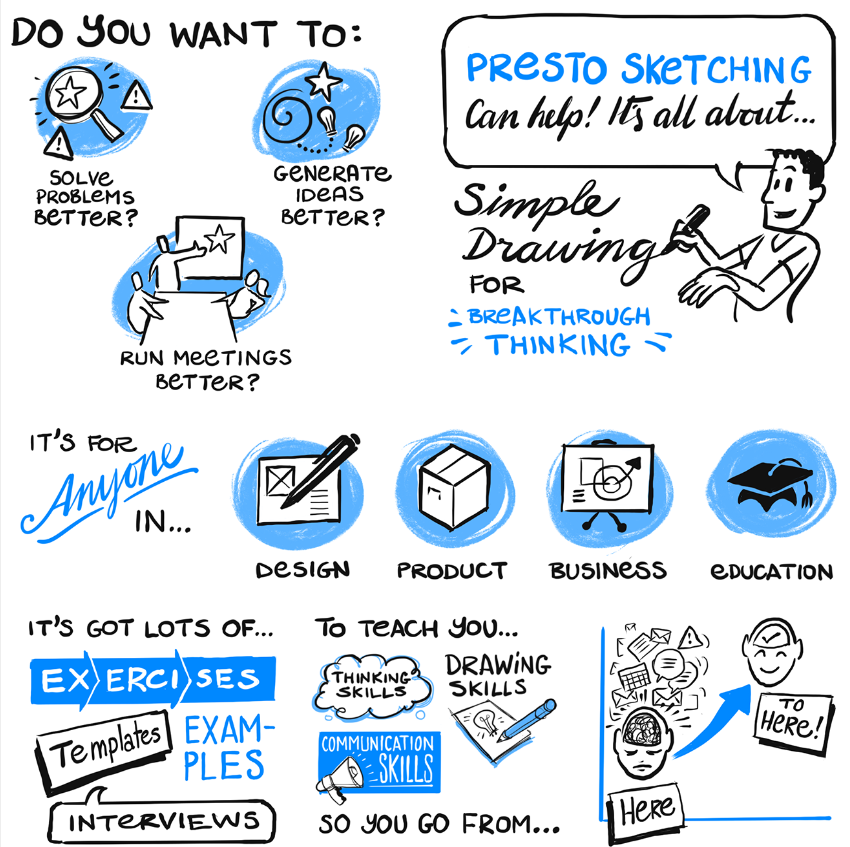 DO YOU WANT TO:
SOLVE
PROBLEMS
BETTER?
GENERATE
IDEAS
BETTER?
RUN MEETINGS
BETTER?
PRESTO SKETCHING
Can help! It's all about...
Simple
Drawing
FOR
BREAKTHROUGH
THINKING
IT'S FOR
Anyone
IN...
DESIGN
PRODUCT
BUSINESS
EDUCATION
IT'S GOT LOTS OF...
EXERCISES
Templates
EXAM-
PLES
INTERVIEWS
TO TEACH YOU...
THINKING
SKILLS
DRAWING
SKILLS
COMMUNICATION
SKILLS
SO YOU GO FROM...
HERE
TO
HERE!